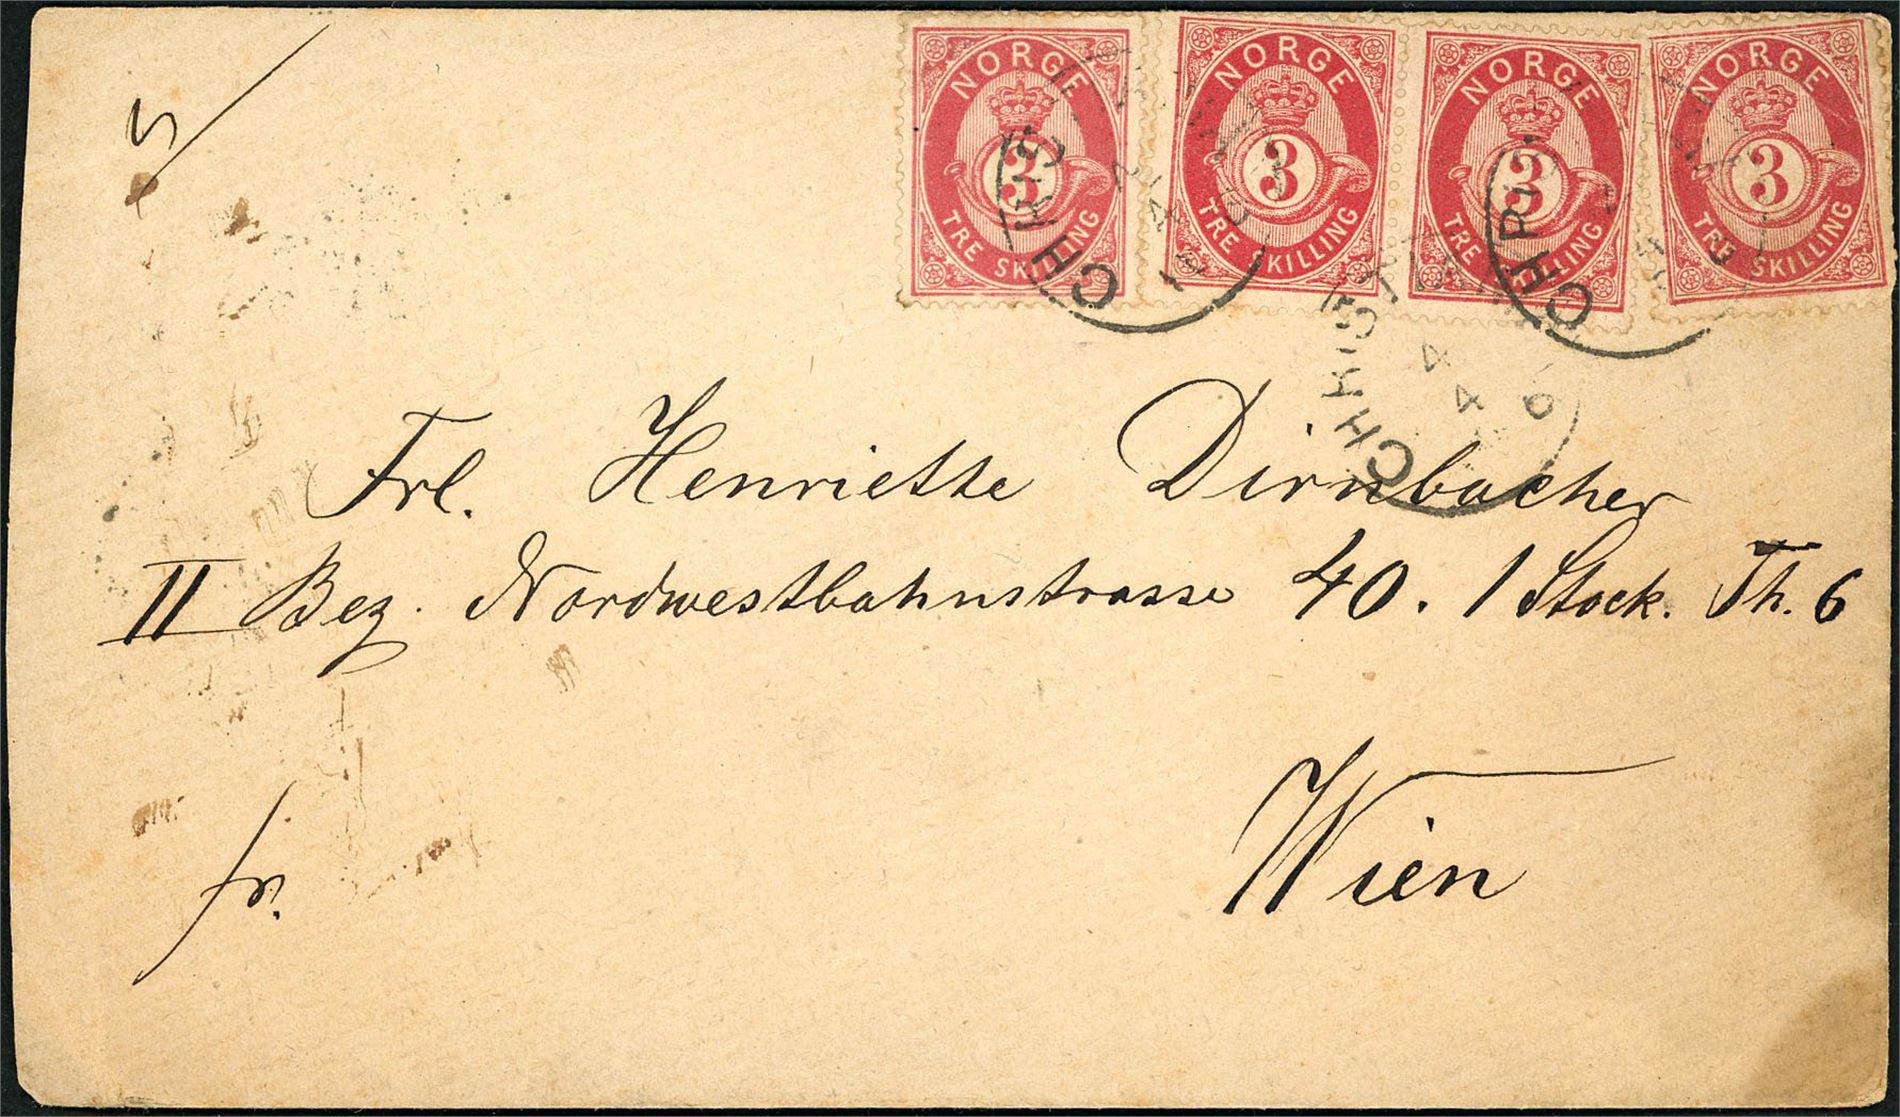 5
NORGE 3 TRE SKILLING
NORGE 3 TRE SKILLING
NORGE 3 TRE SKILLING
NORGE 3 TRE SKILLING
Frl. Henriette Dirnbacher
II Bez. Nordwestbahnstrasse 40. 1 Stock. Th. 6
Wien
fr.